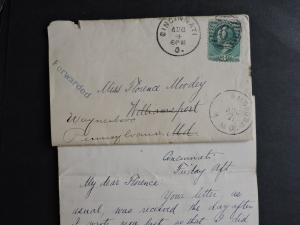 CINCINNATI
AUG
6 PM
O.
Forwarded
Miss Florence Moodey
Williamsport
Waynesboro
Pennsylvania. Md.
Cincinnati
Friday Aft.
My dear Florence
Your letter as
usual, was received the day after
I wrote you last, so that I did